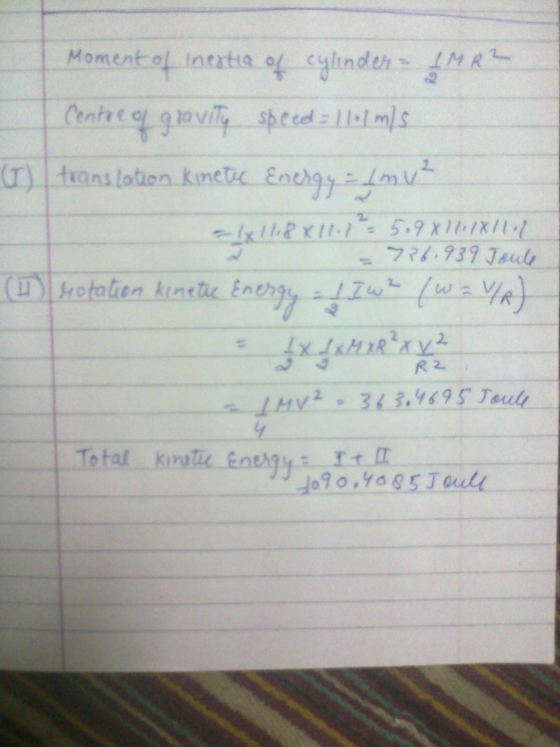 Moment of inertia of cylinder = 1/2 MR²
Centre of gravity speed = 11.1 m/s
(I) translation kinetic Energy = 1/2 mv²
= 1/2 × 11.8 × 11.1² = 5.9 × 11.1 × 11.1
= 726.939 Joule
(II) Rotation kinetic Energy = 1/2 Iω² (ω = V/R)
= 1/2 × 1/2 × M × R² × V²/R²
= 1/4 MV² = 363.4695 Joule
Total kinetic Energy = I + II
1090.4085 Joule